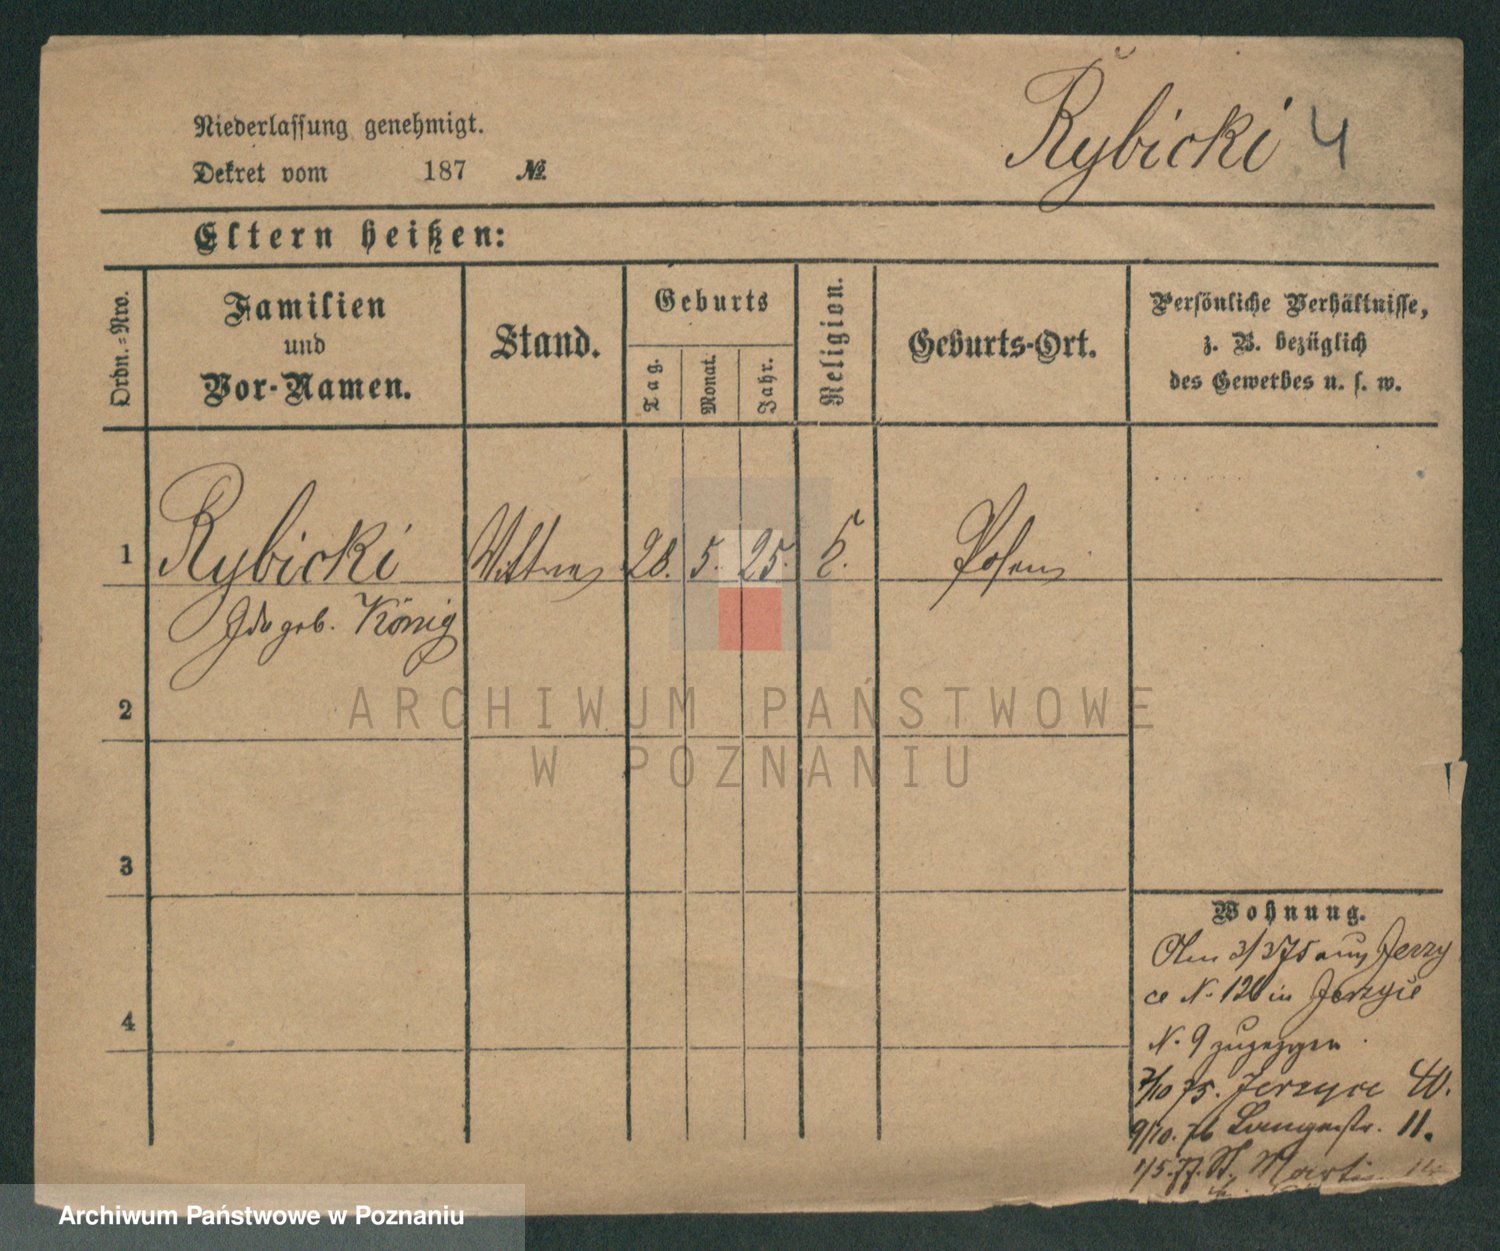 Rybicki 4
Niederlassung genehmigt.
Dekret vom 187 №
Eltern heißen:
Ordn.-Nro.
Familien
und
Vor-Namen.
Stand.
Geburts
Tag.
Monat.
Jahr.
Religion.
Geburts-Ort.
Persönliche Verhältnisse,
z. B. bezüglich
des Gewerbes u. s. w.
1 Rybicki Wittwe 28. 5. 25. Posen
Ida geb. König
2
3
4
Wohnung.
3/3 75 aus Jerzy
ce N. 120 in Jerzyce
N. 9 zugezogen
7/10 75. Jerzyce 40.
9/10. 76 Langestr. 11.
1/5. 77. St. Martin
ARCHIWUM PAŃSTWOWE
W POZNANIU
Archiwum Państwowe w Poznaniu